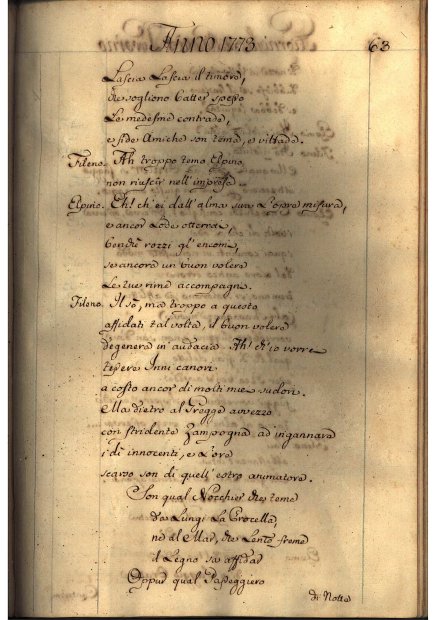 Anno 1773.
63
Lascia Lascia il timore,
che sogliono batter spesso
Le medesime contrade,
e fide Amiche son tema, e viltade.
Fileno. Ah troppo temo Elpino
non riuscir nell'impresa.
Elpino. Eh! ch'ei dall'alma sua L'opre misura,
e ancor Lode otterrai,
benchè rozzi gl'encomi,
se ancora un buon volere
Le tue rime accompagna.
Fileno. Il sò, ma troppo a questo
affidati tal volta, il buon volere
degenera in audacia. Ah! ch'io vorrei
tessere Inni canori
a costo ancor di molti mie sudori.
Ma dietro al Gregge avvezzo
con stridente Zampogna ad ingannare
i dì innocenti, e l'ore
scarso son di quell'estro animatore.
Son qual Nocchier che teme
da Lungi La Procella,
nè al Mar, che Lento freme
il Legno sa affidar
Oppur qual Passeggiero
di Notte